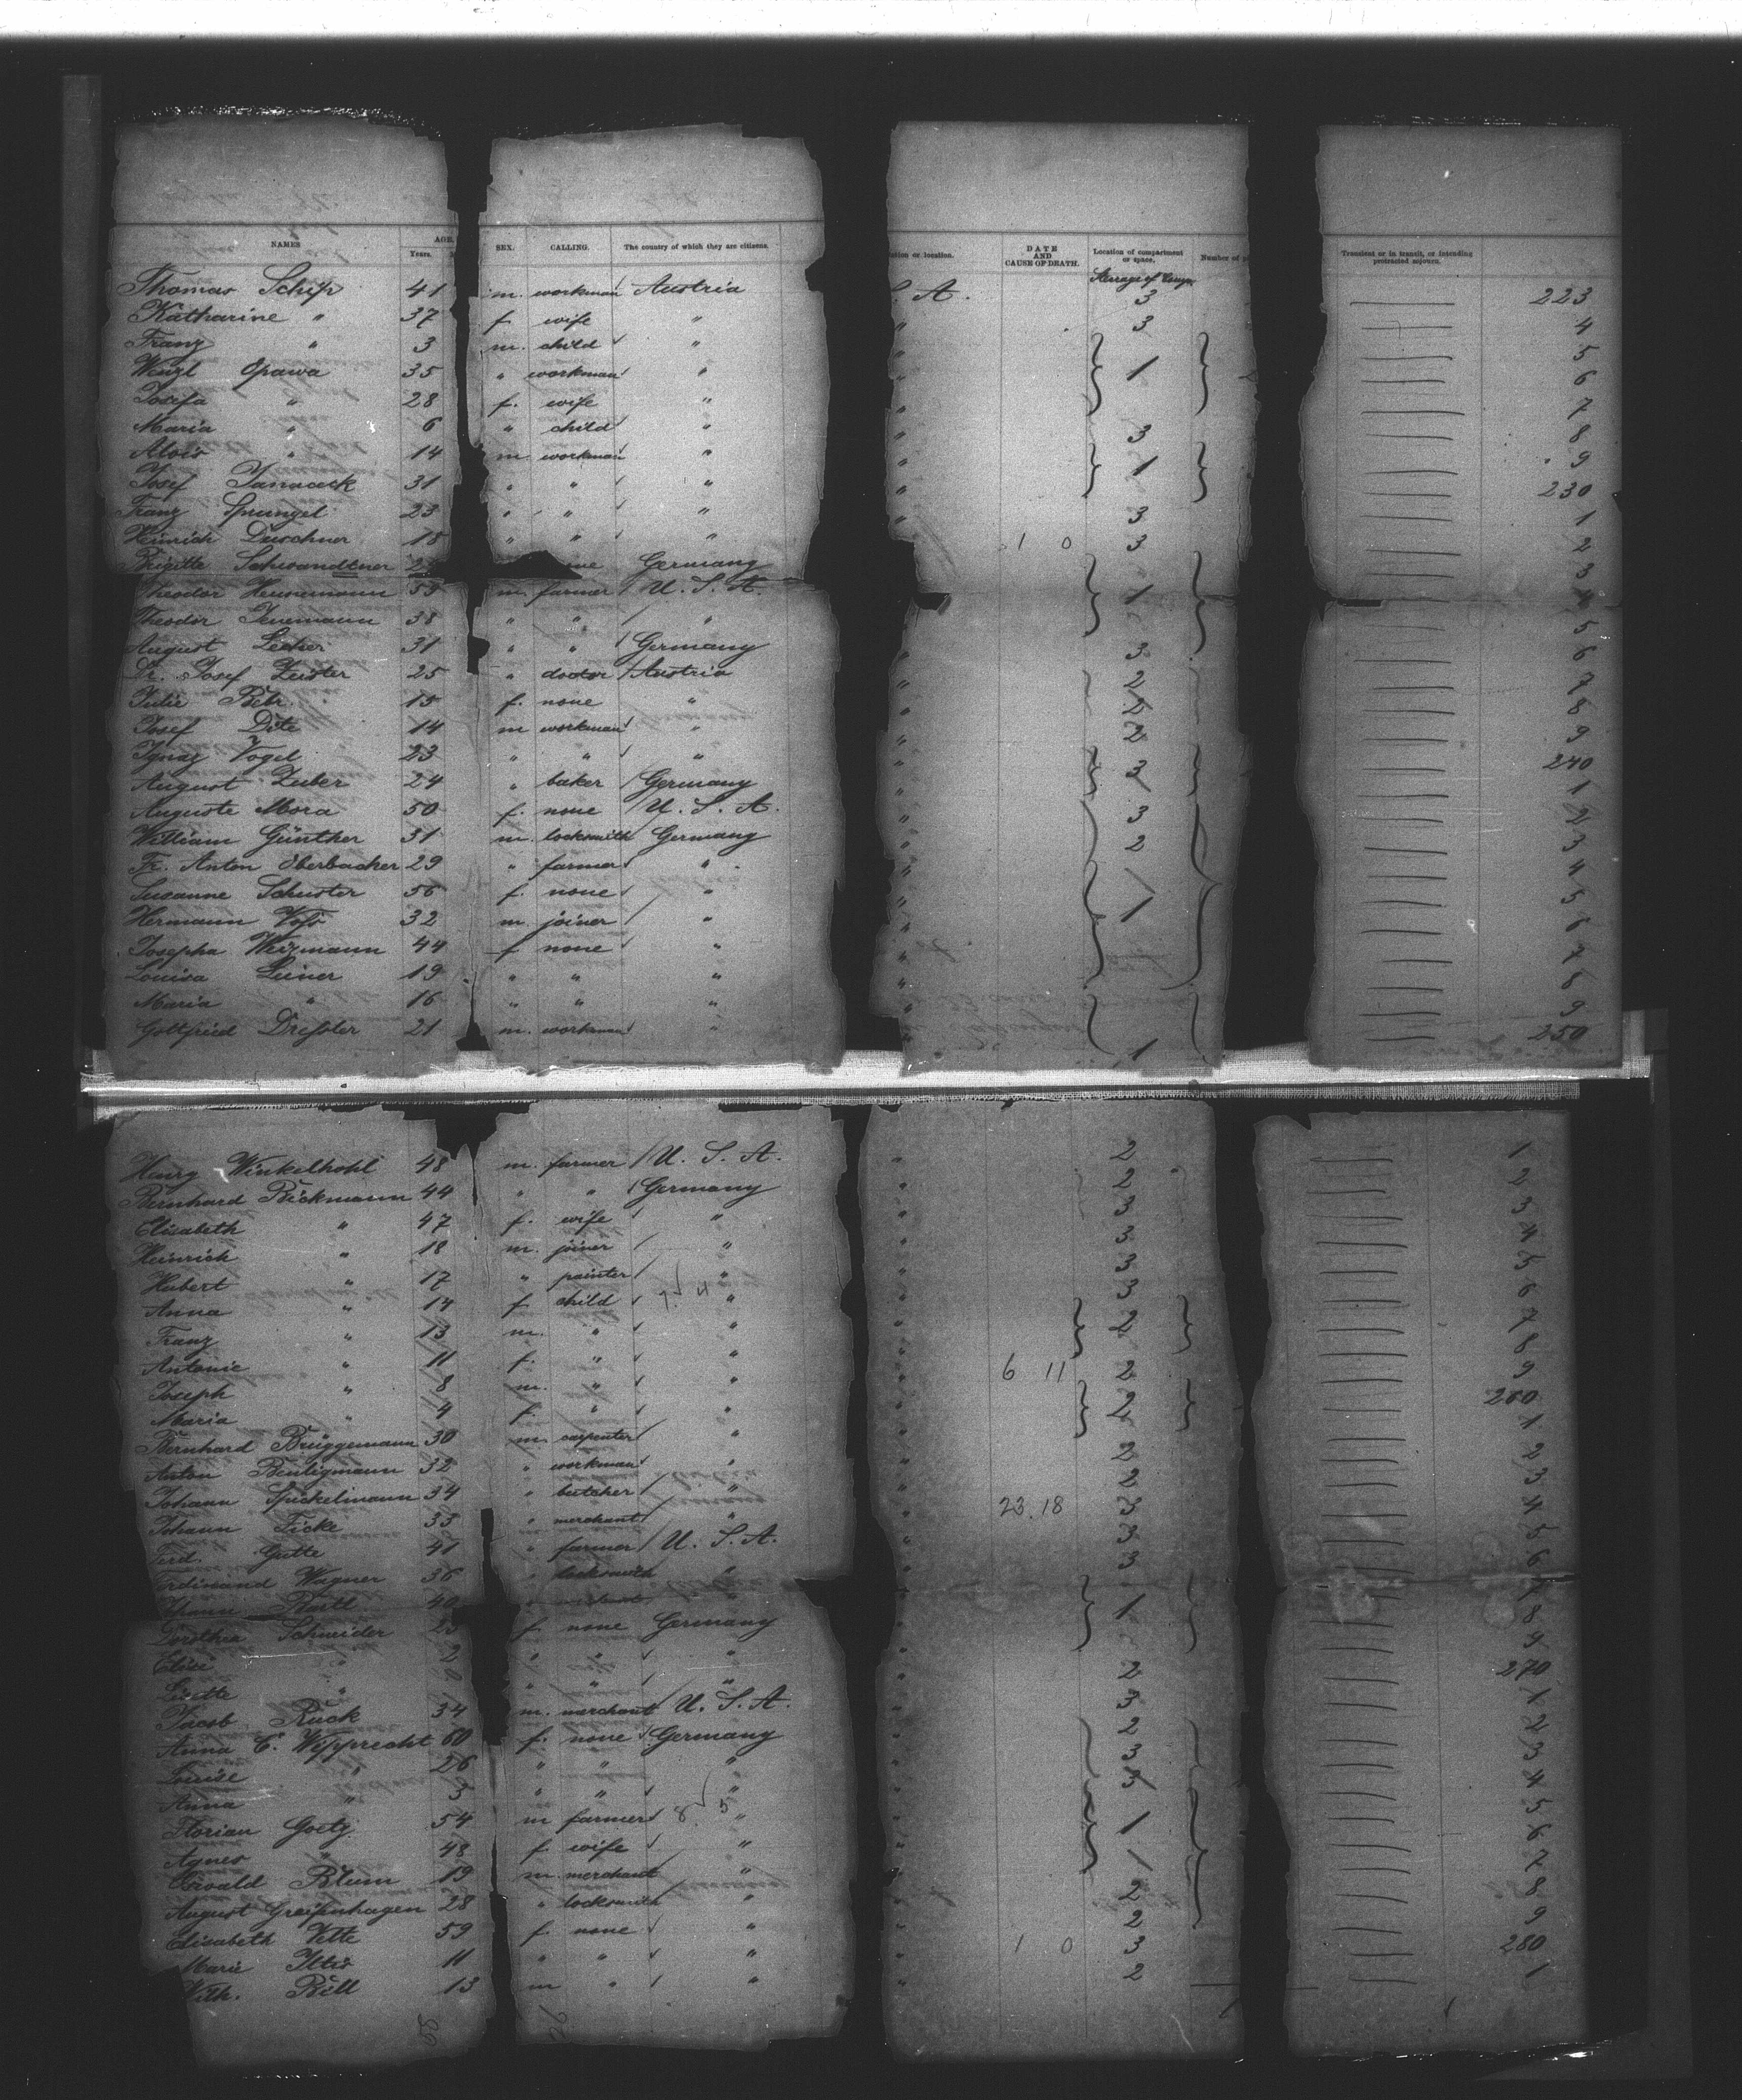 NAMES AGE. Years. SEX. CALLING. The country of which they are citizens. ation or location. DATE AND CAUSE OF DEATH. Location of compartment or space. Number of Transient or in transit, or intending protracted sojourn.
Steerage of Comp.
Thomas Schip 41 m. workman Austria . A. 3 223
Katharine " 37 f. wife " " 3 4
Franz " 3 m. child " " 5
Wenzl Opawa 35 " workman " " 1 6
Josefa " 28 f. wife " " 7
Maria " 6 " child " " 3 8
Alois " 14 m. workman " " 1 9
Josef Janacek 31 " " " " 230
Franz Sprungel 23 " " " " 3 1
Heinrich Duschner 18 " " " 1 0 3 2
Brigitte Schwandtner Germany 3
Theodor Heinemann 53 m. farmer U. S. A. 1 4
Theodor Jenemann 38 " " " 5
August Lecher 31 " " Germany " 3 6
Dr. Josef Zeister 25 " doctor Austria " 2 7
Julie Behr 15 f. none " " 2 8
Josef Dite 14 m workman " " 2 9
Ignaz Vogel 23 " " " " 3 240
August Zuber 24 " baker Germany " 1
Auguste Mora 50 f. none U. S. A. " 3 2
William Günther 31 m. locksmith Germany " 2 3
Fr. Anton Oberbacher 29 " farmer " " 4
Susanne Schuster 56 f. none " " 1 5
Hermann Voss 32 m. joiner " " 6
Josepha Weizmann 44 f. none " " 7
Louisa Leiner 19 " " " " 8
Maria " 16 " " " 9
Gottfried Dressler 21 m. workman " 1 250
Henry Winkelhohl 48 m. farmer U. S. A. " 2 1
Bernhard Bickmann 44 " " Germany " 2 2
Elisabeth " 47 f. wife " " 3 3
Heinrich " 18 m. joiner " " 3 4
Hubert " 17 " painter " " 3 5
Anna " 14 f. child " " 3 6
Franz " 13 m. " " " 2 7
Antonie " 11 f. " " " 8
Joseph " 8 m. " " " 6 11 2 9
Maria " 4 f. " " " 2 260
Bernhard Brüggemann 30 m. carpenter " " 1
Anton Beuligmann 32 " workman " " 2 2
Johann Spickelmann 34 " butcher " " 2 3
Johann Ficke 33 " merchant " " 23. 18 3 4
Ferd. Gutte 41 " farmer U. S. A. " 3 5
Ferdinand Wagner 36 " locksmith " " 3 6
40 7
Dorothea Schneider 23 f. none Germany 1 8
Elise " 2 " " " 9
Lisette " " " " 2 270
Jacob Ruck 34 m. merchant U. S. A. 3 1
Anna C. Wipprecht 60 f. none Germany 2 2
Louise " 26 " " " 3 3
Anna " 3 " " " 3 4
Florian Goetz 54 m farmer 8 5 " 1 5
Agnes " 48 f. wife " 6
Oswald Blum 19 m. merchant " 1 7
August Greifenhagen 28 " locksmith " 2 8
Elisabeth Vette 59 f. none " 2 9
Marie Iltis 11 " " " 1 0 3 280
Wilh. Bell 13 m " " " 2 1